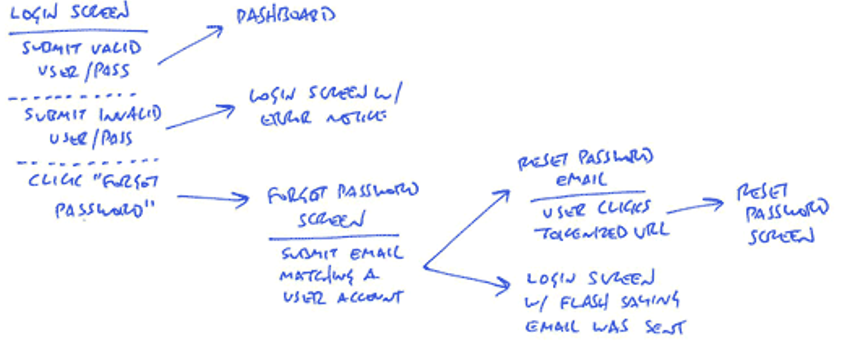 LOGIN SCREEN
SUBMIT VALID
USER/PASS
DASHBOARD
SUBMIT INVALID
USER/PASS
LOGIN SCREEN W/
ERROR NOTICE
CLICK "FORGOT
PASSWORD"
FORGOT PASSWORD
SCREEN
SUBMIT EMAIL
MATCHING A
USER ACCOUNT
RESET PASSWORD
EMAIL
USER CLICKS
TOKENIZED URL
RESET
PASSWORD
SCREEN
LOGIN SCREEN
W/ FLASH SAYING
EMAIL WAS SENT